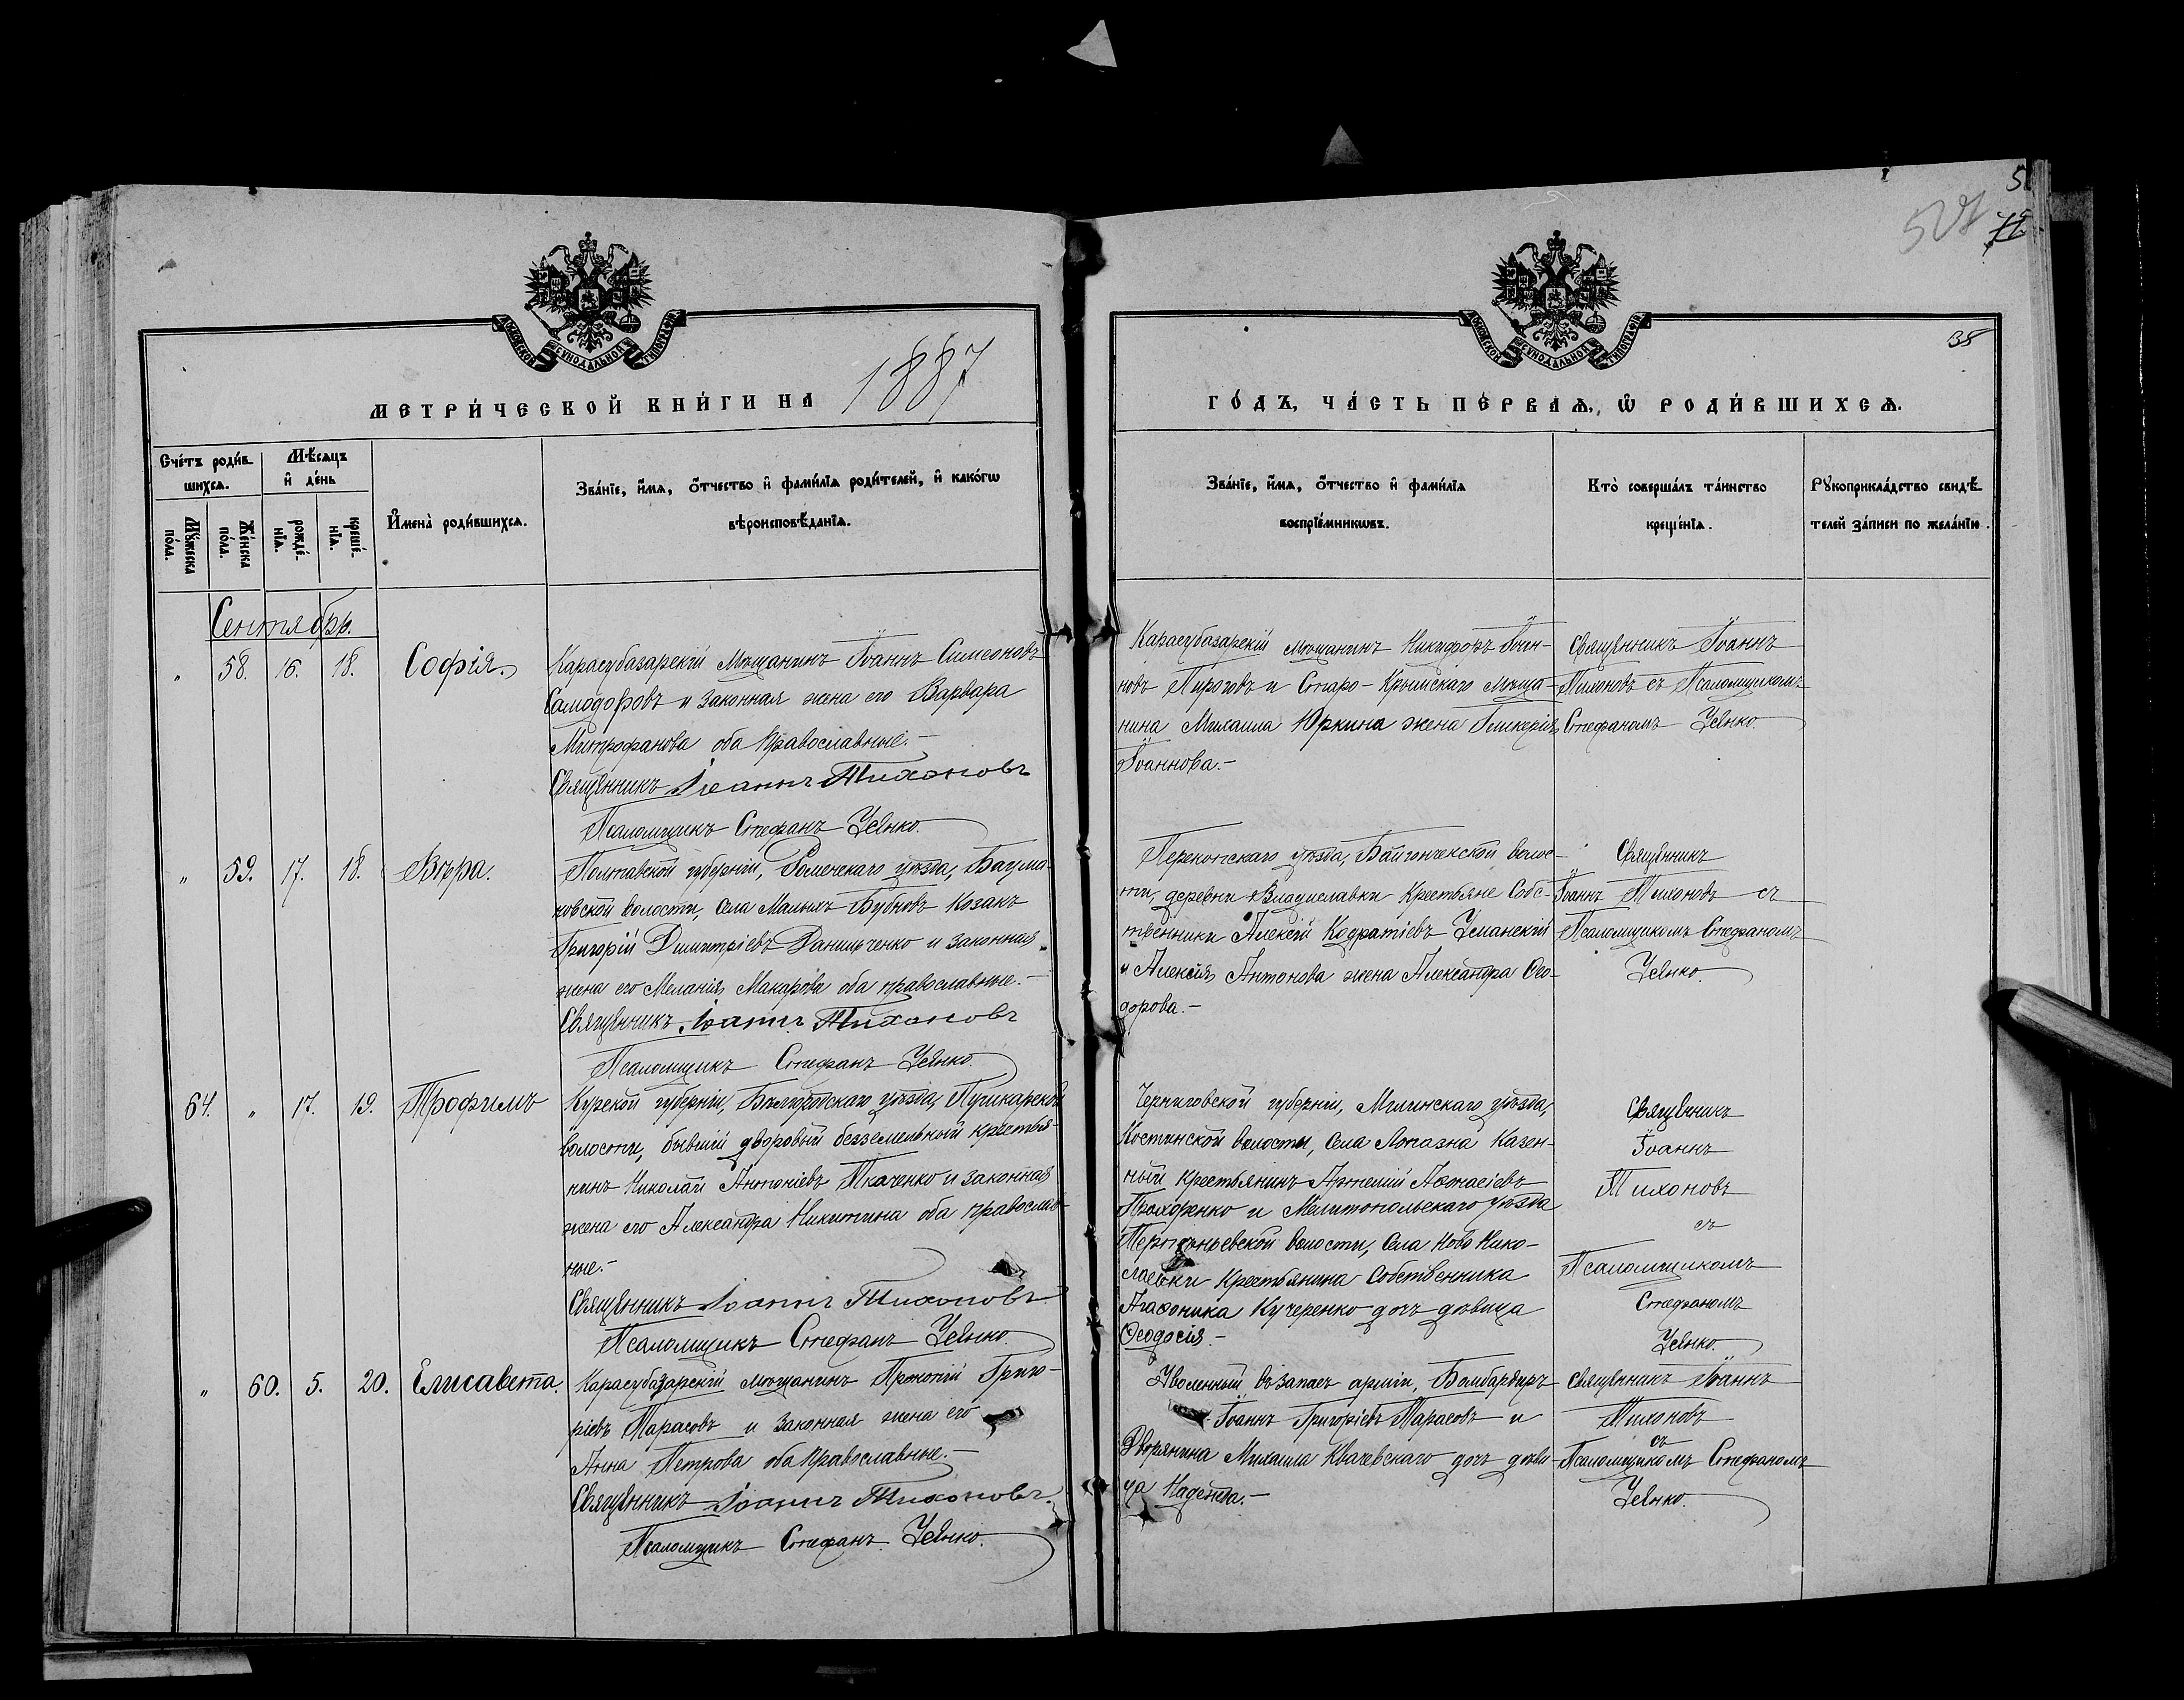 527
МОСКОВСКОЙ СѴНОДАЛЬНОЙ ТИПОГРАФІИ
МОСКОВСКОЙ СѴНОДАЛЬНОЙ ТИПОГРАФІИ
35
МЕТРИ́ЧЕСКОЙ КНИ́ГИ НА 1887
ГО́ДЪ, ЧА́СТЬ ПЕ́РВАѦ, Ѡ҆ РОДИ́ВШИХСѦ.
Сче́тъ роди́в-
шихсѧ.
Мꙋ́жеска по́ла.
Же́нска по́ла.
Мѣ́сѧцъ
и҆ де́нь
рожде́-
нїѧ.
креще́-
нїѧ.
И҆мена̀ роди́вшихсѧ.
Зва́нїе, и҆́мѧ, ѻ҆́тчество и҆ фами́лїѧ роди́телей, и҆ како́гѡ
вѣроисповѣ́данїѧ.
Зва́нїе, и҆́мѧ, ѻ҆́тчество и҆ фами́лїѧ
воспрїе́мникѡвъ.
Кто̀ соверша́лъ та́инство
креще́нїѧ.
Рꙋкоприкла́дство свидѣ́-
телей за́писи по жела́нїю.
Сентябрь.
„ 58. 16. 18. Софія.
Карасубазарскій мѣщанинъ Іоаннъ Симеоновъ
Самодоровъ и законная жена его Варвара
Митрофанова оба православные.-
Священникъ Іоаннъ Тихоновъ
Псаломщикъ Стефанъ
Карасубазарскій мѣщанинъ Никифоръ Іоан-
новъ Пироговъ и Старо-Крымскаго мѣща-
нина Михаила Юркина жена Гликерія
Іоаннова.-
Священникъ Іоаннъ
Тихоновъ съ Псаломщикомъ
Стефаномъ
„ 59. 17. 18. Вѣра.
Полтавской губерніи, Роменскаго уѣзда,
волости, села Малыхъ Бубновъ Козакъ
Григорій Димитріевъ Данильченко и законная
жена его Меланія Макарова оба православные.-
Священникъ Іоаннъ Тихоновъ
Псаломщикъ Стефанъ
Перекопскаго уѣзда, волос-
ти, деревни Владиславки Крестьяне Собс-
твенники Алексѣй Кодратіевъ Уманскій
и Алексѣя Антонова жена Александра Ѳео-
дорова.-
Священникъ
Іоаннъ Тихоновъ съ
Псаломщикомъ Стефаномъ
64. „ 17. 19. Трофимъ
Курской губерніи, Бѣлгородскаго уѣзда, Пушкарской
волости, бывшій дворовый безземельный крестья-
нинъ Николай Антоніевъ Ткаченко и законная
жена его Александра Никитина оба православ-
ные.-
Священникъ Іоаннъ Тихоновъ
Псаломщикъ Стефанъ
Черниговской губерніи, Мглинскаго уѣзда,
Костинской волости, села Казен-
ный крестьянинъ Артемій
Прохоренко и Мелитопольскаго уѣзда
волости, села Ново Нико-
лаевки Крестьянина Собственника
Агаѳоника Кучеренко дочь дѣвица
Ѳеодосія.-
Священникъ
Іоаннъ
Тихоновъ
съ
Псаломщикомъ
Стефаномъ
„ 60. 5. 20. Елисавета.
Карасубазарскій мѣщанинъ Прокопій Григо-
ріевъ Тарасовъ и законная жена его
Анна Петрова оба православные.-
Священникъ Іоаннъ Тихоновъ.
Псаломщикъ Стефанъ
Уволенный въ запасъ арміи, Бомбардиръ
Іоаннъ Григоріевъ Тарасовъ и
Дворянина Михаила Квачевскаго дочь дѣви-
ца Надежда.-
Священникъ Іоаннъ
Тихоновъ
съ
Псаломщикомъ Стефаномъ